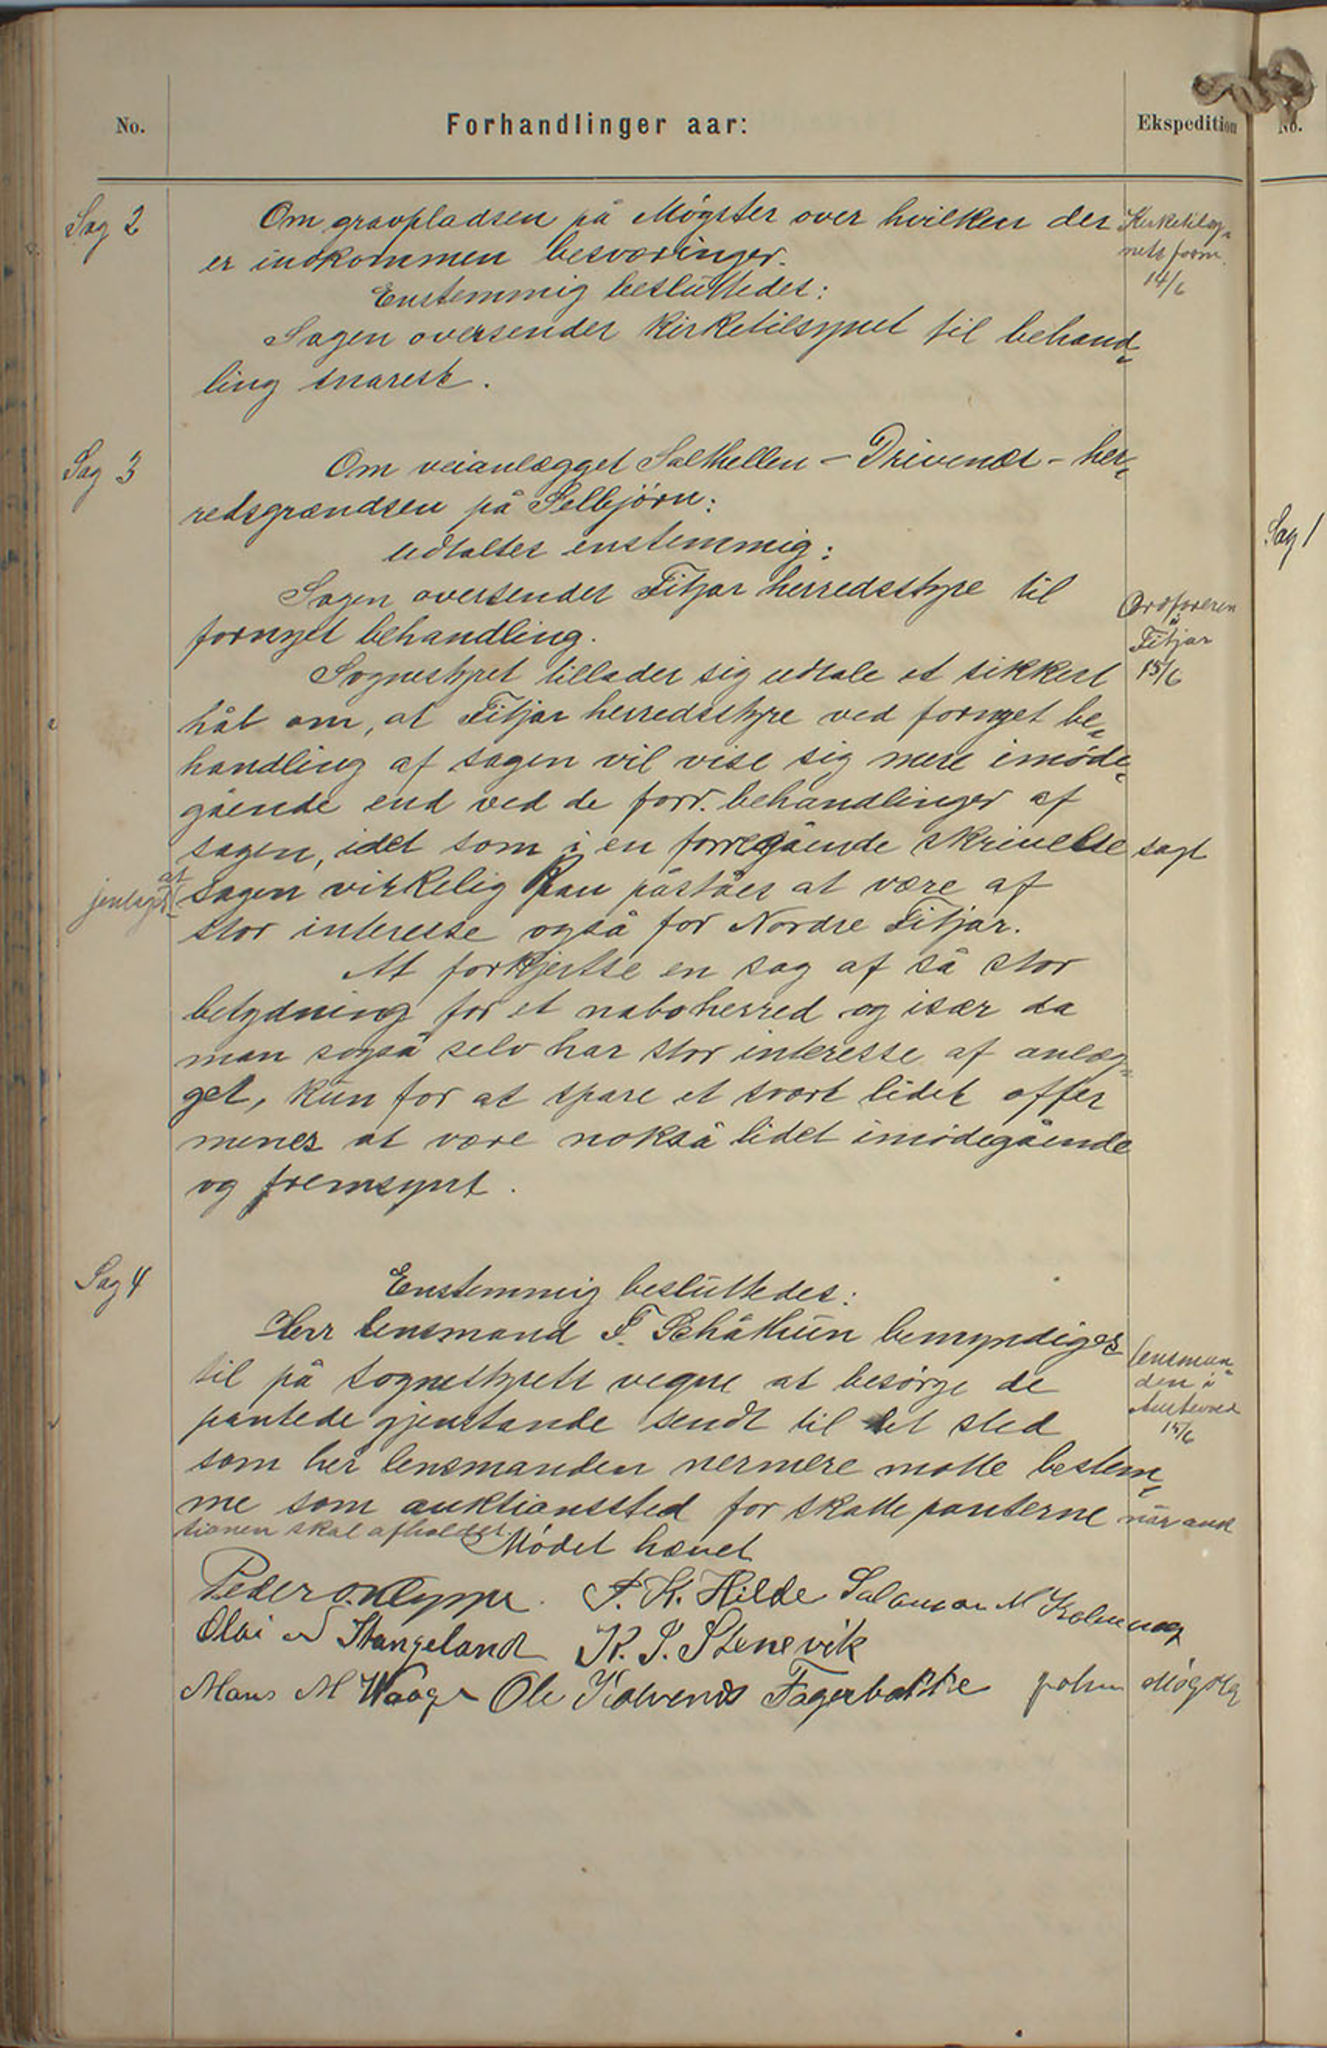 No.
Forhandlinger aar:
Ekspedition
No.
Sag 2
Om gravpladsen på Møgster over hvilken der
er indkommen besværinger.
Enstemmig besluttedes:
Sagen oversendes kirketilsynet til behand-
ling snarest.
Kirketilsy-
nets form.
14/6
Sag 3
Om veianlægget Salthellen - Drivenes - her-
redsgrændsen på Selbjörn:
Udtaltes enstemmig:
Sagen oversendes Fitjar herredsstyre til
fornyet behandling.
Ordföreren
i
Fitjar
15/6
Sognestyret tillader sig udtale et sikkert
håb om, at Fitjar herredsstyre ved fornyet be-
handling af sagen vil vise sig mere imøde-
gående end ved de forr. behandlinger af
sagen, idet som i en forregående skrivelse sagt
jentages at
sagen virkelig kan påståes at være af
stor interesse også for Nordre Fitjar.
At forkjertse en sag af så stor
betydning for et naboherred og især da
man også selv har stor interesse af anlæg-
get, kun for at spare et svært lidet offer
menes at være nokså lidet imødegående
og fremsynt.
Sag 4
Enstemmig besluttedes:
Herr lensmand F. Schåthun bemyndiges
til på sognestyrets vegne at besörge de
pantede gjenstande sendt til det sted
som her lensmanden nermere måtte bestem-
me som auktionssted for skattepanterne når auk
tionen skal afholdes
lensman-
den i
Austevold
15/6
Mödet hævet
Peder O. Kleppe. P. K. Hilde Salamon M Kolbenæg
Olai N Stangeland K. J. Stenevik
Mons M Waage Ole Kalvenes Fagerbakke Johan Møgster
Sag 1